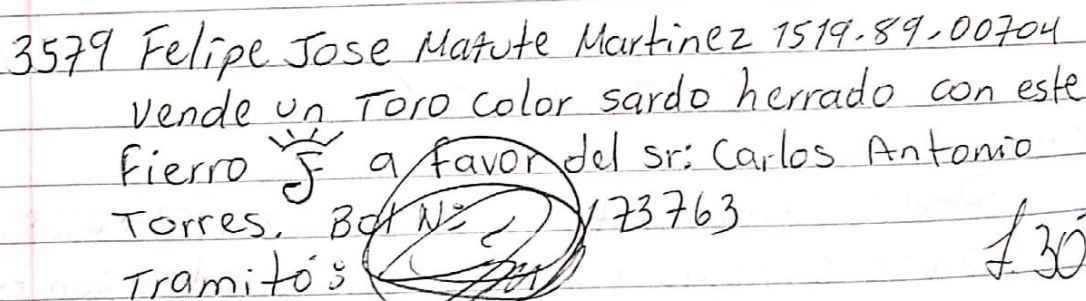 3579 Felipe Jose Matute Martinez 1519.89.00704
Vende un Toro color sardo herrado con este
Fierro a favor del sr: Carlos Antonio
Torres. Bot Nº 173763
Tramitó:
L.30